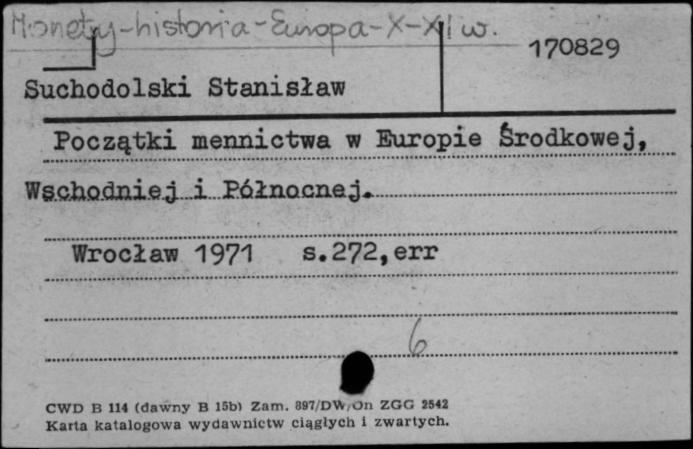 Monety-historia-Europa-X-XI w.
170829
Suchodolski Stanisław
Początki mennictwa w Europie Środkowej,
Wschodniej i Północnej.
Wrocław 1971 s.272,err
6
CWD B 114 (dawny B 15b) Zam. 897/DW/On ZGG 2542
Karta katalogowa wydawnictw ciągłych i zwartych.